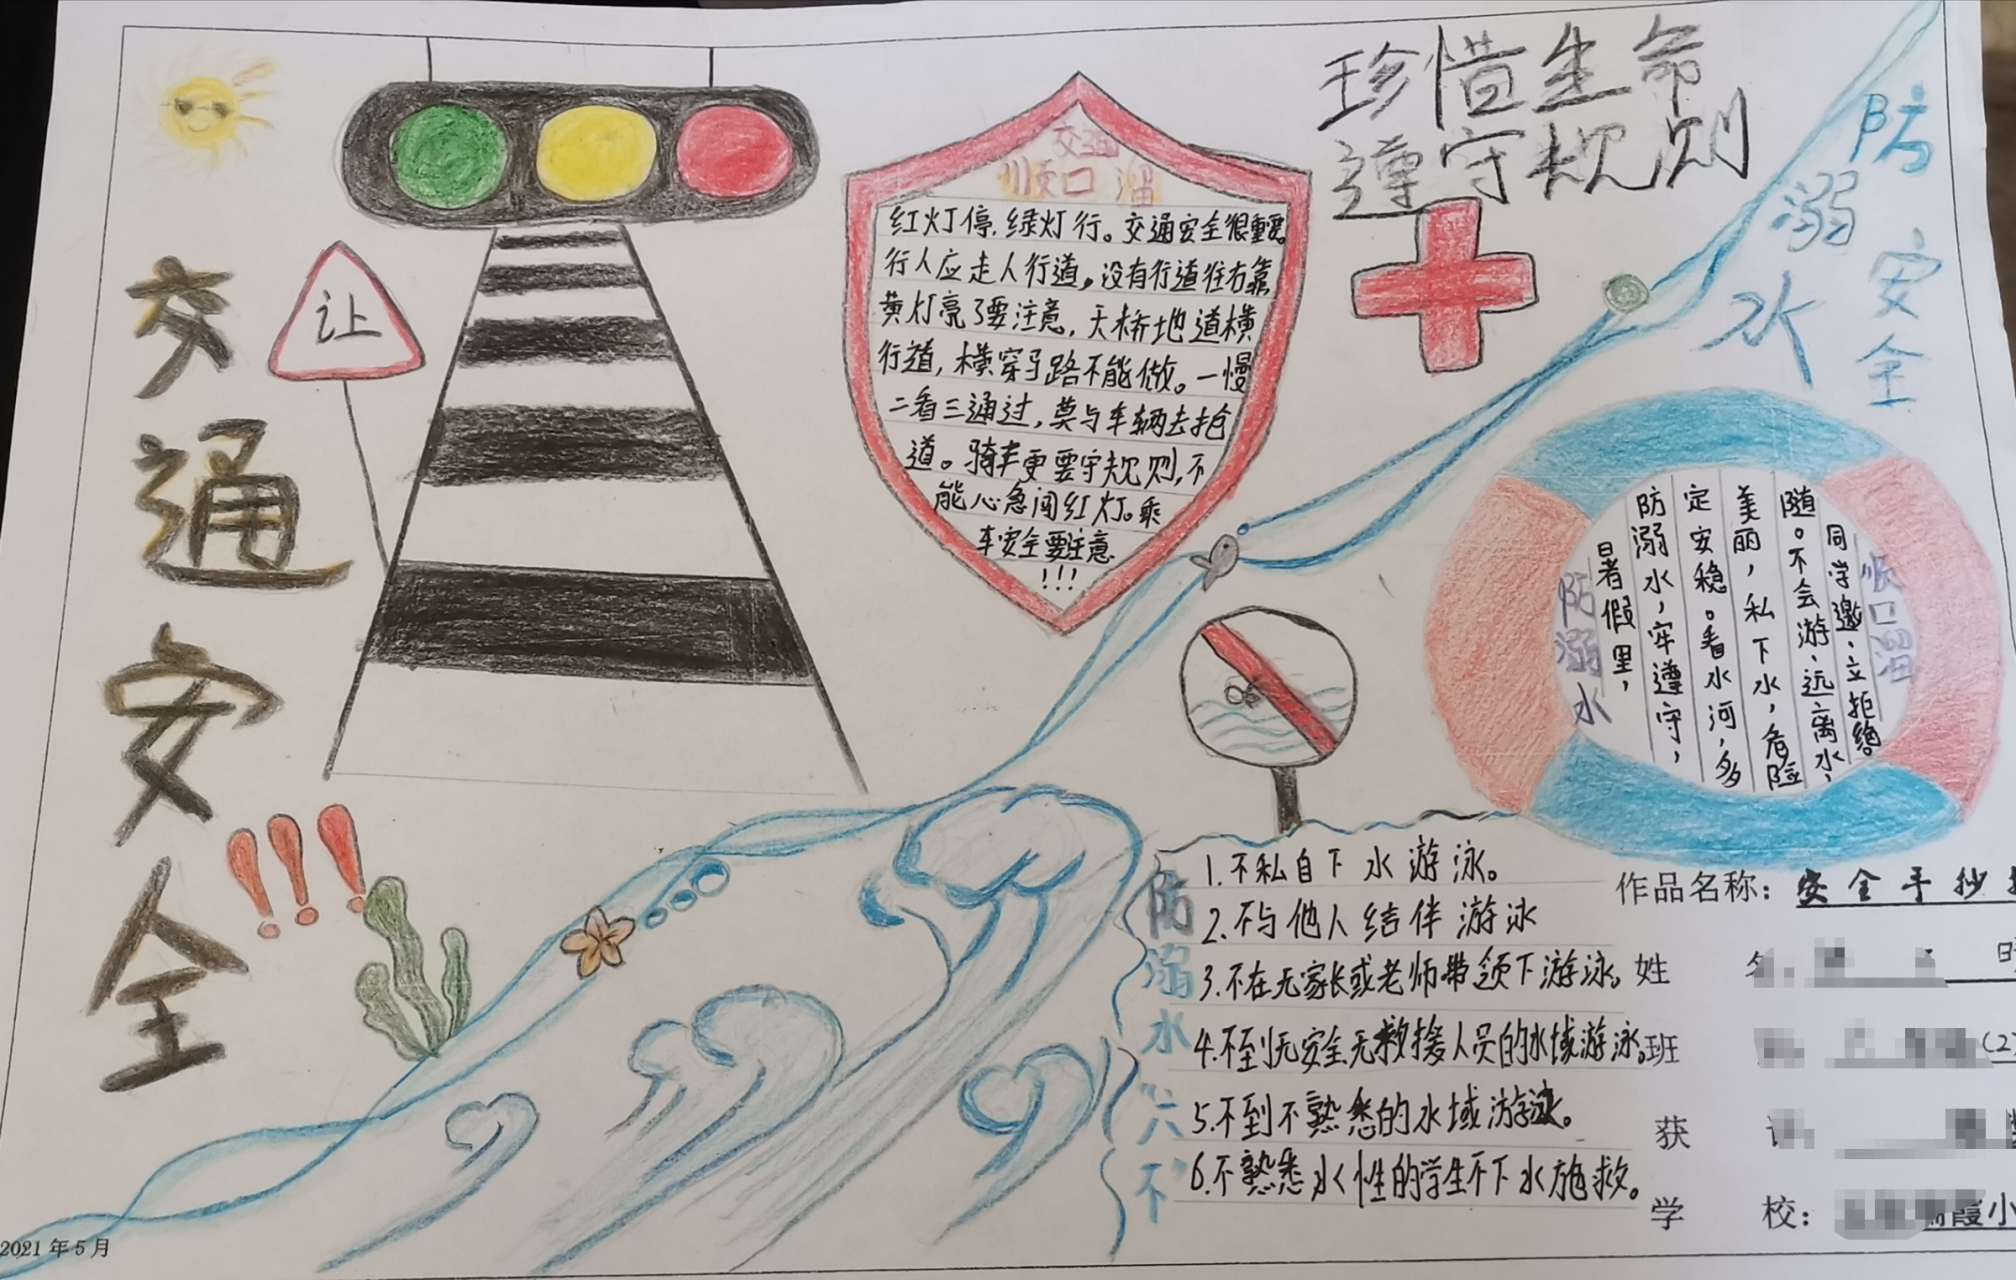 交通安全
让
交通
顺口溜
红灯停,绿灯行。交通安全很重要。
行人应走人行道。没有行道往右靠
黄灯亮了要注意,天桥地道横
行道,横穿马路不能做。一慢
二看三通过,莫与车辆去抢
道。骑车更要守规则,不
能心急闯红灯。乘
车安全要注意
!!!
珍惜生命
遵守规则
防溺水
安全
防溺水
顺口溜
暑假里,
防溺水,牢遵守,
定安稳。看水河,多
美丽,私下水,危险
随。不会游、远离水,
同学邀、立拒绝。
防溺水
“六不”
1.不私自下水游泳。
2.不与他人结伴游泳
3.不在无家长或老师带领下游泳。
4.不到无安全无救援人员的水域游泳。
5.不到不熟悉的水域游泳。
6.不熟悉水性的学生不下水施救。
作品名称:安全手抄
姓
班 (2
获
学 校: 霞小
2021年5月